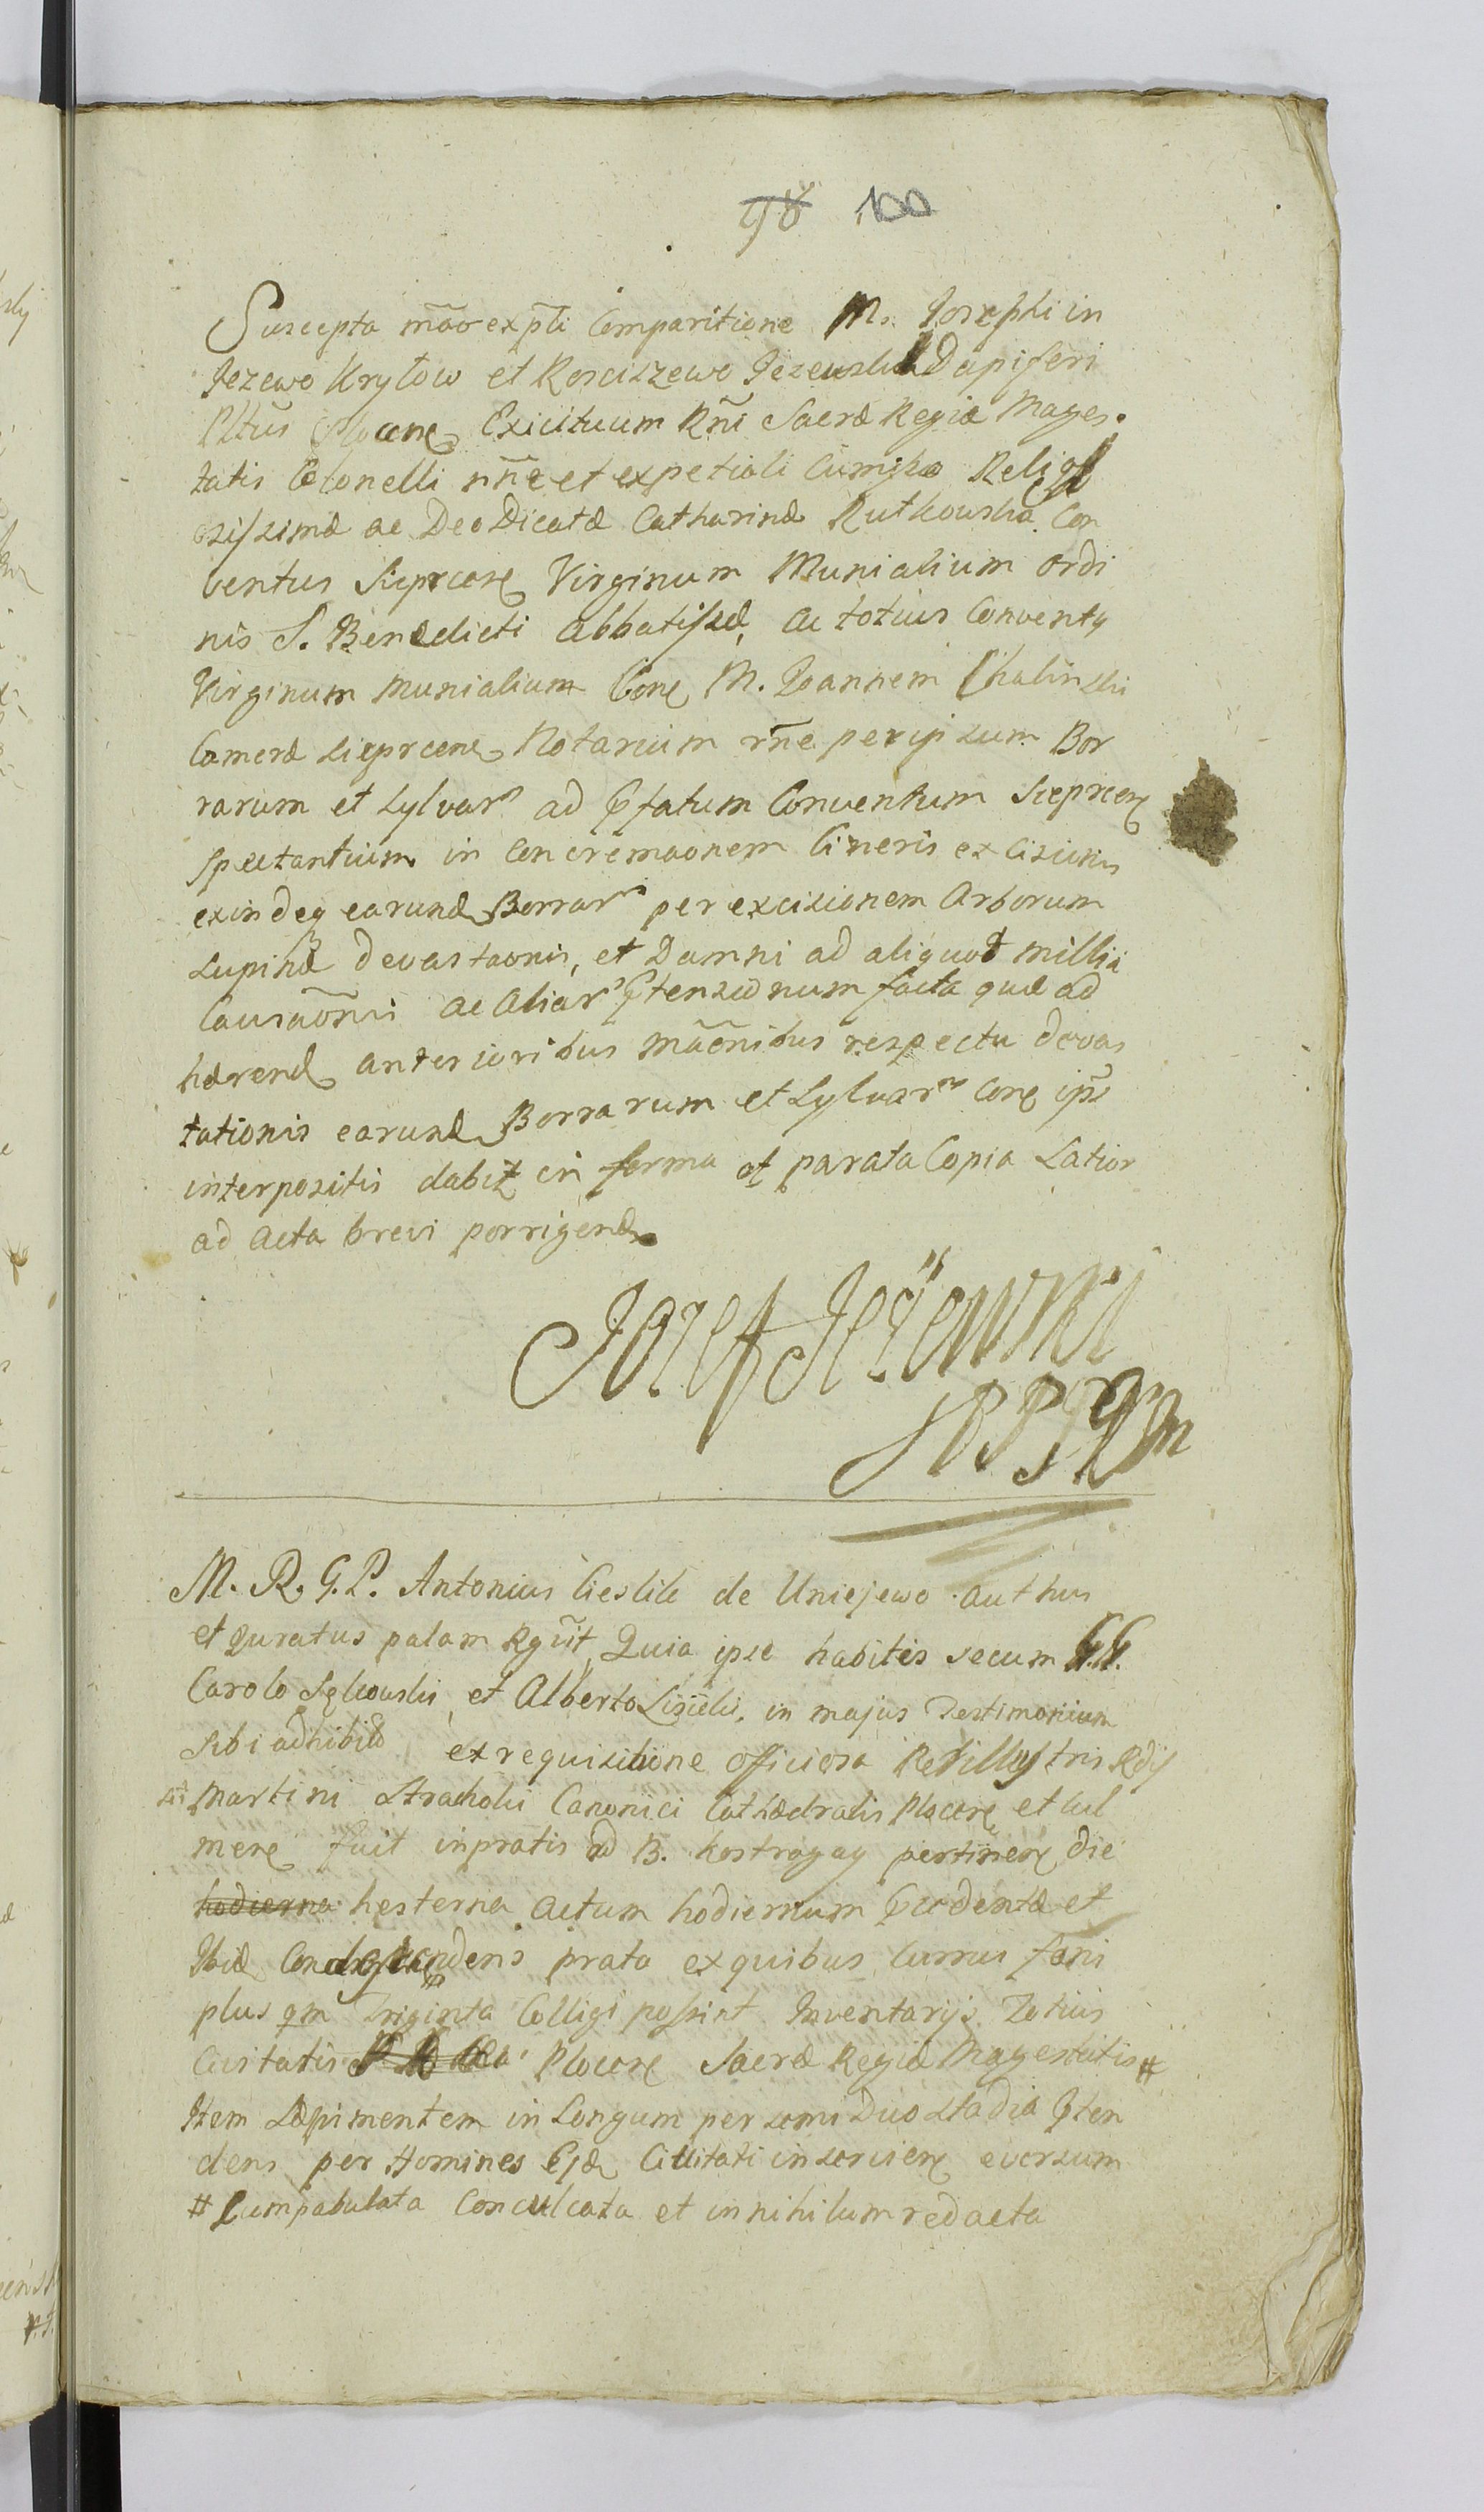 98 100
Suscepta mão expli Comparitione M. Josephi in
Jezewo Krytow et Kosciszewo Jezewski Dapiferi
Pltus Plocen Exicituum Rni Sacræ Regiæ Mages.
tatis Colonelli nñe et ex petiali Religi
osissimæ ac Deo Dicatæ Catharinæ Rutkowska Con
ventus Sieprcen Virginum Munialium Ordi
nis S. Benedicti Abbatissæ, ac totius Conventq
Virginum munialium Con M. Joannem Chalinski
Cameræ Sieprcen Notarium rñe per ipsum Bor
rarum et Sylvar ad Pfatum Conventum Sieprcen
spectantium in Concremaonem Cineris excisionis
exindeq earund Borrar per excisionem Arborum
Lupinæ devastaonis, et Damni ad aliquot millia
Causaõnis ac Aliar Ptensionum facta quæ ad
hærend anterioribus mãonibus respectu devas
tationis earund Borrarum et Sylvar Con ips
interpositis dabit in forma et parata Copia Latior
ad Acta brevi porrigend
Jozef Jezewski
M. R. G. P. Antonius Cieslik de Uniejewo authus
et Juratus palam Rguit, Quia ipse habitis secum G.G.
Carolo Sękowski, et Alberto Lisicki, in majus Testimonium
Sibi adhibito ex requisitione officiosa Perillustris Rdi
Martini Strachoki Canonici Cathedralis Plocen et Cul
men fuit in pratis ad B. Kostrogay pertinen die
hodierna hesterna Actum hodiernum Pcedenta et
Ibid Condescendens prata ex quibus Currus fæni
plus qm Triginta Colligi possint Inventarijs Totius
Civitatis Plocen Sacræ Regiæ Magestatis #
Item Sæpimentem in Longum per semi Duo stadia Pten
dens per Homines Ejd Civitati inservien eversum
# Compabulata Conculcata et in nihilum redacta